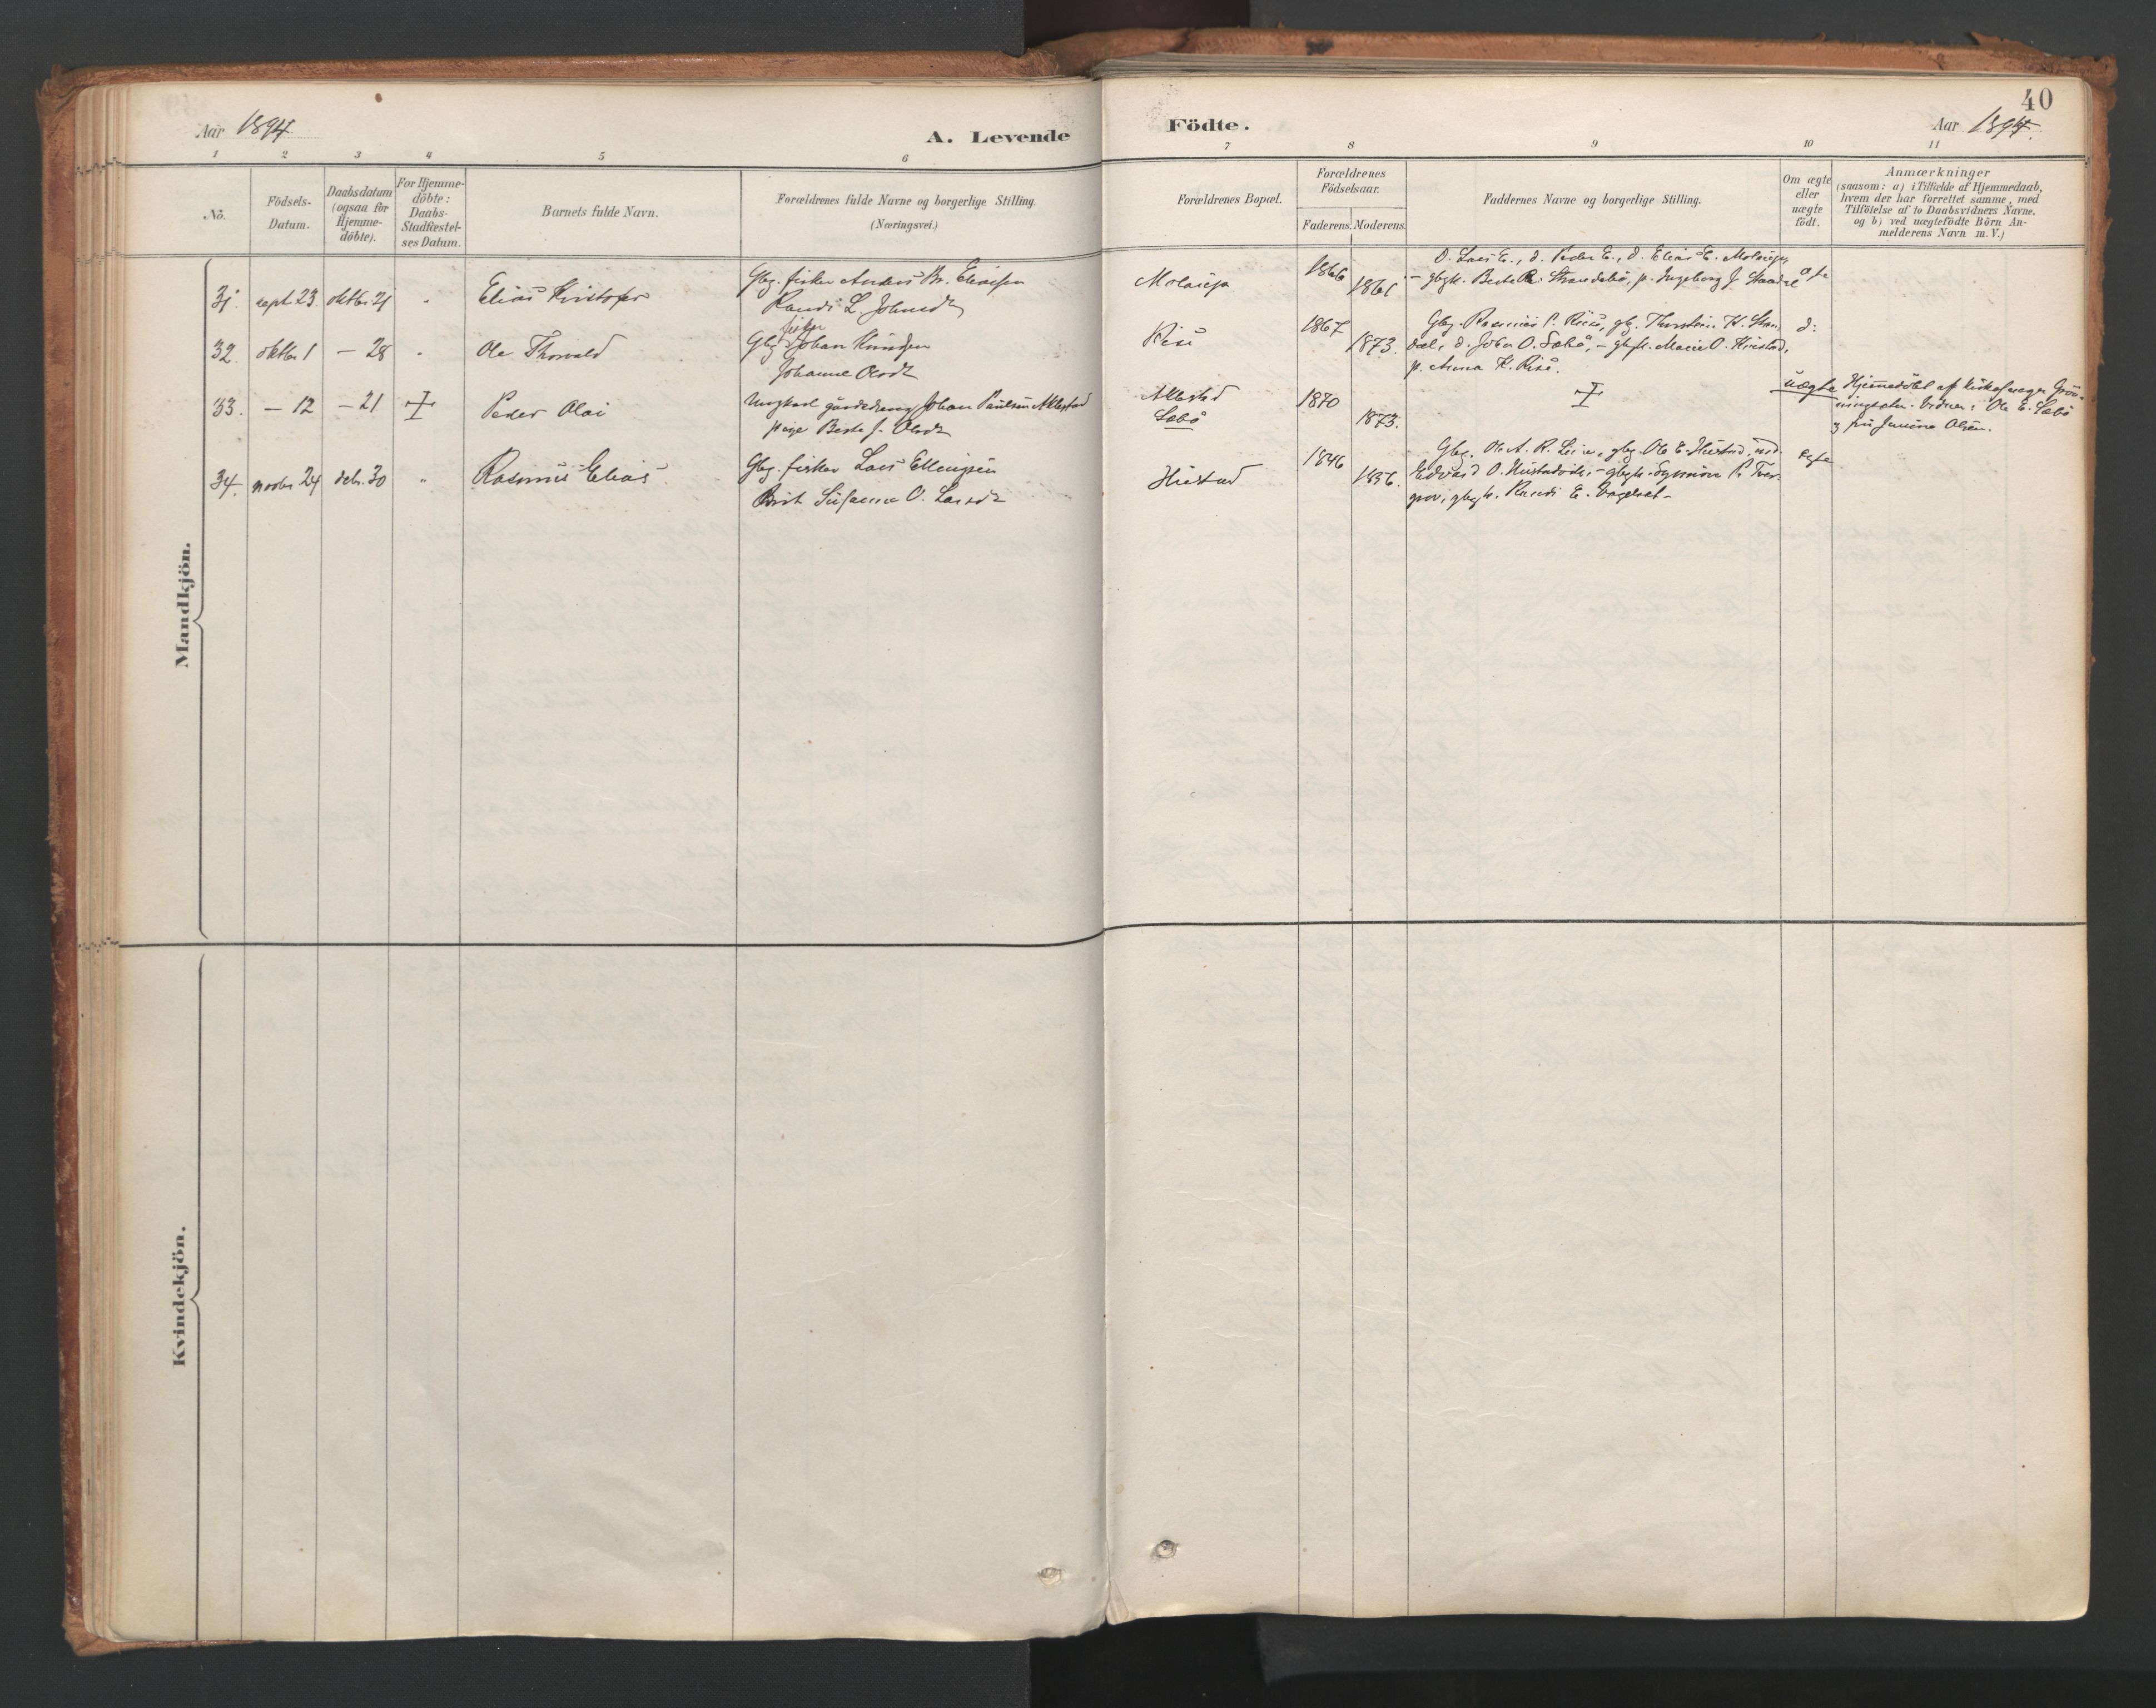 40
Aar 1894.
A. Levende Födte.
Aar 1894.
1 2 3 4 5 6 7 8 9 10 11
No.
Födsels-
Datum.
Daabsdatum
(ogsaa for
Hjemme-
döbte).
For Hjemme-
döbte:
Daabs-
Stadfæstel-
ses Datum.
Barnets fulde Navn.
Forældrenes fulde Navne og borgerlige Stilling.
(Næringsvei.)
Forældrenes Bopæl.
Forældrenes
Födselsaar.
Faderens. Moderens.
Faddernes Navne og borgerlige Stilling.
Om ægte
eller
uægte
födt.
Anmærkninger
(saasom: a) i Tilfælde af Hjemmedaab,
hvem der har forrettet samme, med
Tilföielse af to Daabsvidners Navne,
og b) ved uægtefödte Börn An-
melderens Navn m. V.)
Mandkjön.
31. sept. 23 oktbr. 21 " Elias Kristofer
Gbg. fisker Anders Br. Eliassen
Randi L. Johnsdt
1866
1861
O. Lars E., d. Peder E., d. Elias E.
gbgk. Berte R. p. Ingeborg J.
32. oktbr 1 - 28 " Ole Thorvald
fisker
Gbg. Johan Knudsen
Johanne Olsdt
Rise
1867
1873.
Gbg. Rasmus P. Riise, gbg. Thorstein K. Stan-
dal, d. Johan O. Sæbø, - gbgk. Marie O. Hustad,
p. Anna K. Rise.
d:
33. - 12 - 21 Peder Olai
Ungkarl gårdsdreng Johan Paulsen Aklestad
pige Berte J. Olsdt
Aklestad
Sæbö
1870
1873.
uægte
Hjemmedöbt af kirkesanger Grön-
ningsæter. Vidner: Ole E. Sæbö
og fru Janine Olsen.
34. novbr 24 debr. 30 " Rasmus Elias
Gbg. fisker Lars Ellingsen
Brit Susanne O. Larsdt
Hustad
1846
1856.
Gbg. Ole A. R. gbg. Ole E. Hustad, und.
Edvard O. Hustadvik, - gbgk. Synnöve P.
gbgk. Randi E.
ægte
Kvindekjön.